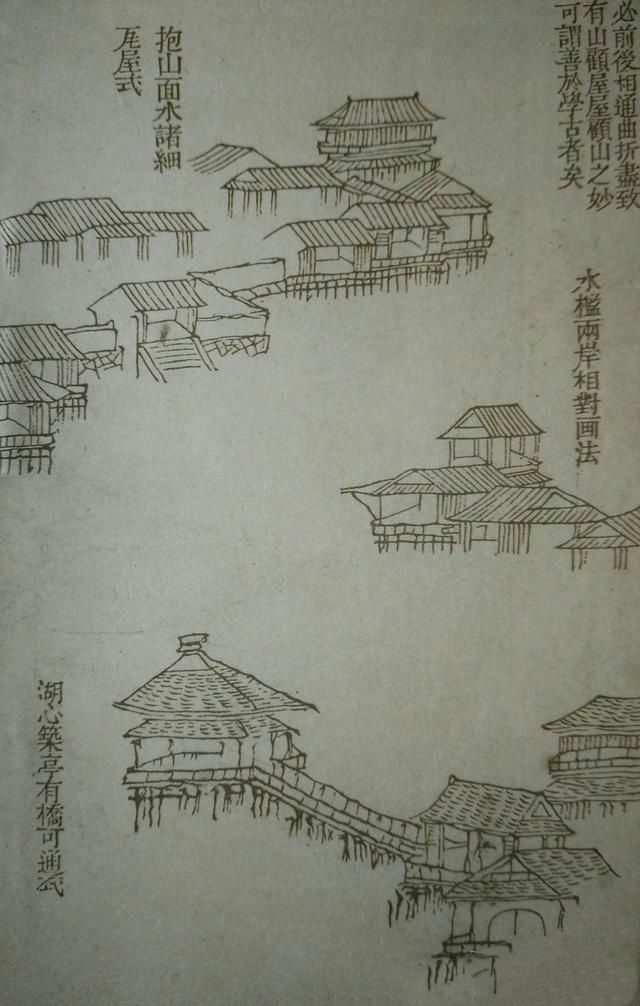 必前後相通曲折盡致
有山顧屋屋顧山之妙
可謂善於學古者矣
抱山面水諸細
瓦屋式
水檻兩岸相對画法
湖心築亭有橋可通式